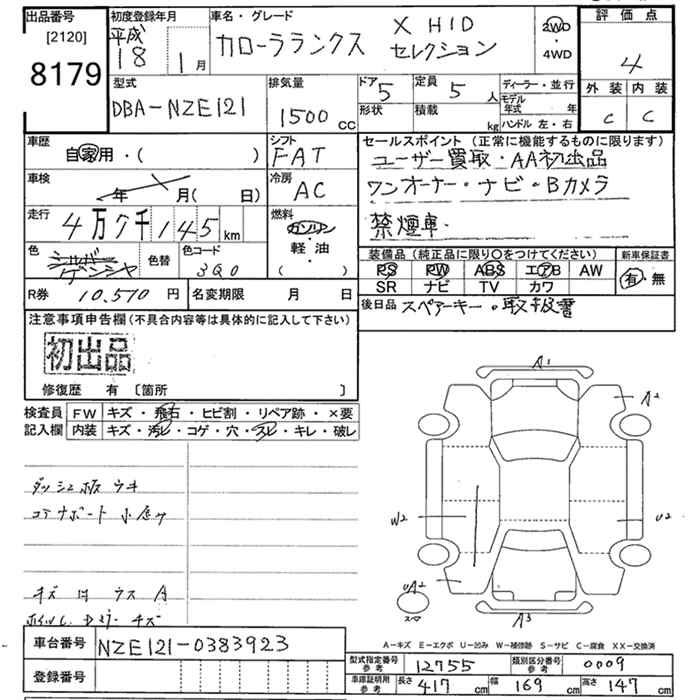 出品番号
[2120]
8179
初度登録年月
平成
18 1月
車名・グレード
カローラランクス
X HID
セレクション
2WD
・
4WD
評価点
4
外装 内装
C C
型式
DBA-NZE121
排気量
1500cc
ドア 5
形状
定員 5人
積載 kg
ディーラー・並行
モデル年式 年
ハンドル 左・右
車歴
自家用・( )
シフト
FAT
車検
年 月( 日)
冷房
AC
走行
4万7千145km
燃料
ガソリン
軽・油
( )
色
シルバー
ゲンシャ
色替
色コード
3Q0
R券 10,510円
名変期限 月 日
セールスポイント(正常に機能するものに限ります)
ユーザー買取・AA初出品
ワンオーナー・ナビ・Bカメラ
禁煙車
装備品(純正品に限り○をつけてください)
PS PW ABS エアB AW
SR ナビ TV カワ
新車保証書
有・無
後日品 スペアーキー・取扱書
注意事項申告欄(不具合内容等は具体的に記入して下さい)
初出品
修復歴 有〔箇所 〕
検査員
記入欄
FW キズ・飛石・ヒビ割・リペア跡・×要
内装 キズ・汚レ・コゲ・穴・スレ・キレ・破レ
ダッシュ板 ウキ
キズ ハ ウス A
A1
A2
W2
U2
UA2
スマ
A3
車台番号 NZE121-0383923
登録番号
A-キズ E-エクボ U-凹み W-補修跡 S-サビ C-腐食 XX-交換済
型式指定番号 参考 12755
類別区分番号 参考 0009
車庫証明用 参考 長さ 417cm 幅 169cm 高さ 147cm